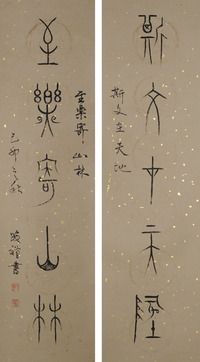 斯文在天地
斯文在天地
至樂寄山林
至樂寄山林
己卯之秋
書